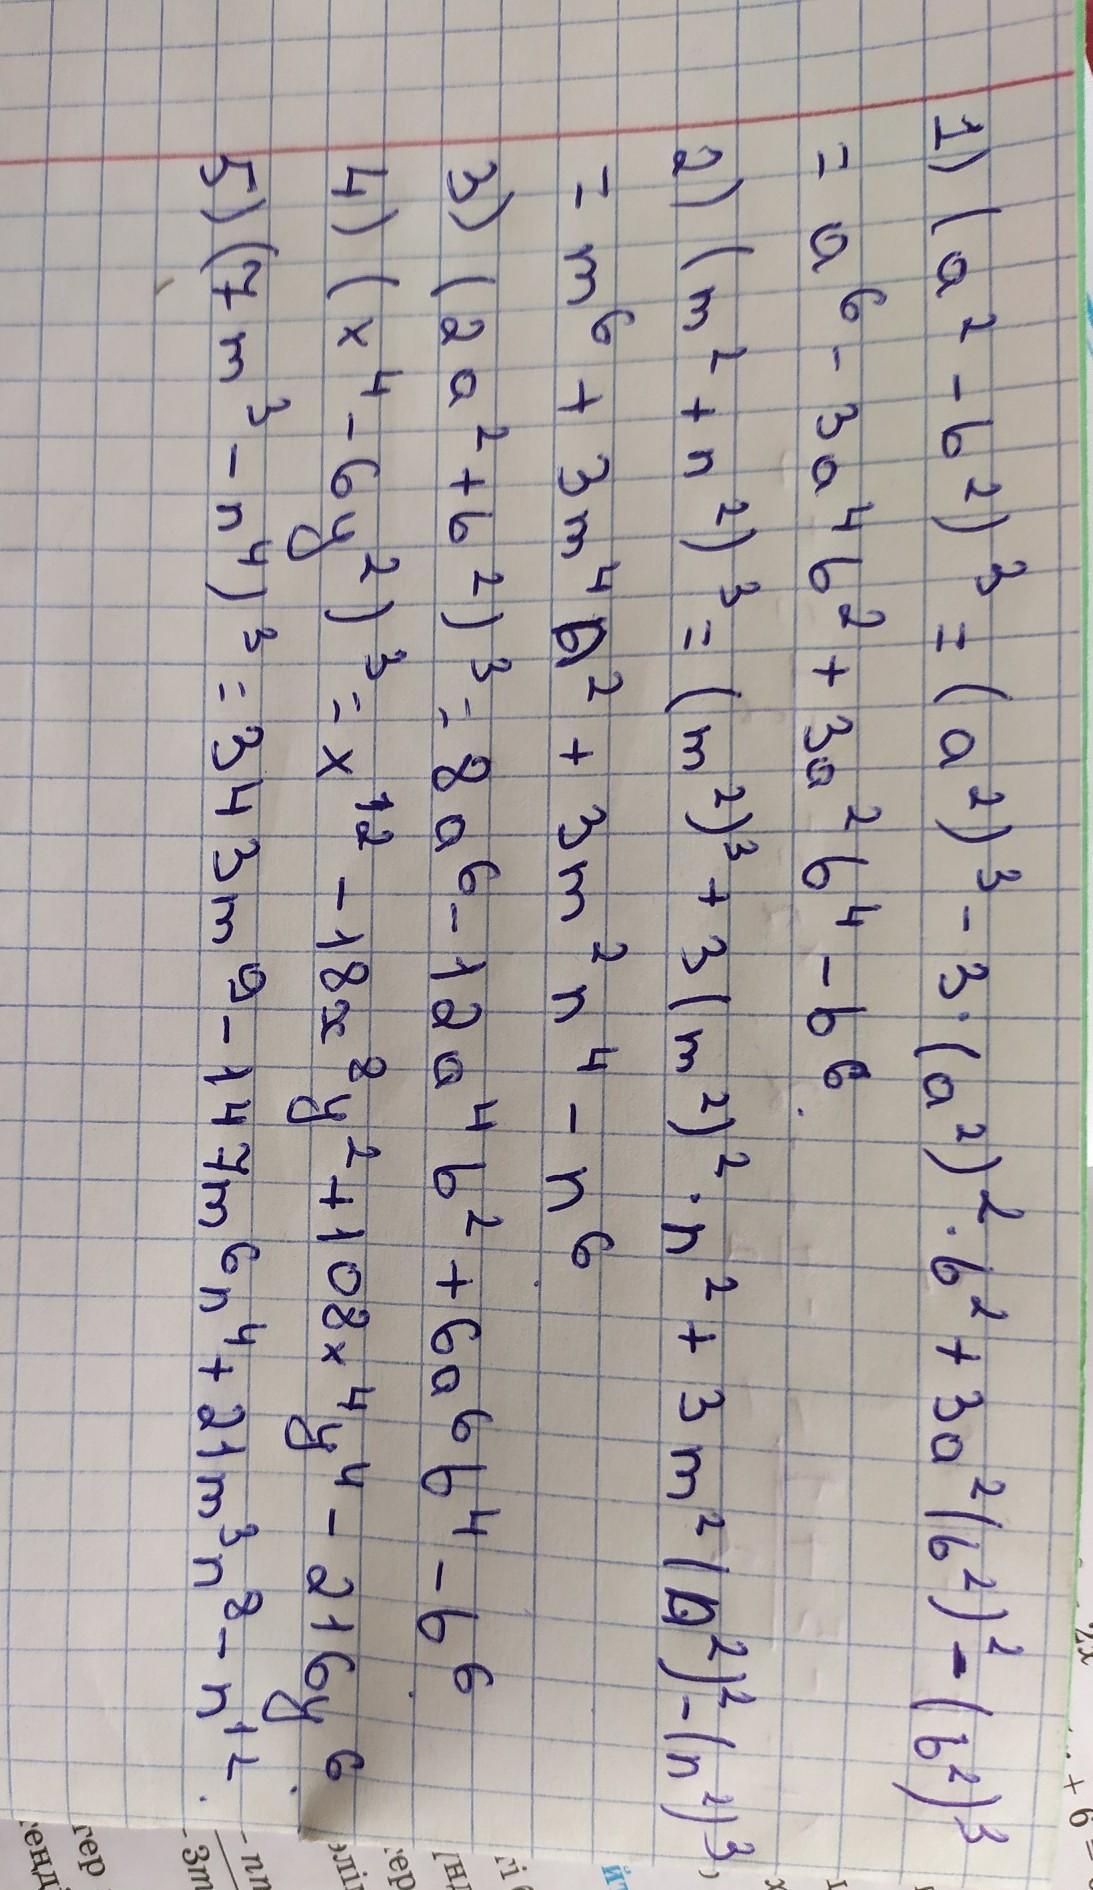 1) (a² - b²)³ = (a²)³ - 3·(a²)²·b² + 3a²(b²)² - (b²)³
= a⁶ - 3a⁴b² + 3a²b⁴ - b⁶.
2) (m² + n²)³ = (m²)³ + 3(m²)²·n² + 3m²(n²)² - (n²)³
= m⁶ + 3m⁴n² + 3m²n⁴ - n⁶.
3) (2a² + b²)³ = 8a⁶ - 12a⁴b² + 6a⁶b⁴ - b⁶.
4) (x⁴ - 6y²)³ = x¹² - 18x⁸y² + 108x⁴y⁴ - 216y⁶.
5) (7m³ - n⁴)³ = 343m⁹ - 147m⁶n⁴ + 21m³n⁸ - n¹².